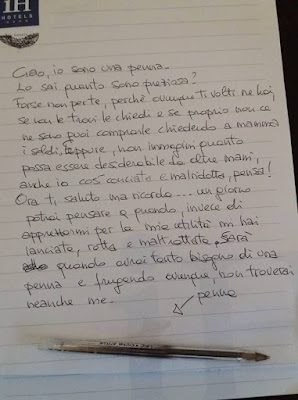 iH
HOTELS
Ciao, io sono una penna.
Lo sai quanto sono preziosa?
Forse non per te, perchè ovunque ti volti ne hai,
se non le trovi le chiedi e se proprio non ce
ne sono puoi comprarle chiedendo a mamma
i soldi. Eppure, non immagini quanto
possa essere desiderabile da altre mani,
anche io così conciata e malridotta, pensa!
Ora ti saluto ma ricorda... un giorno
potrai pensare a quando, invece di
apprezzarmi per la mia utilità mi hai
lanciata, rotta e maltrattata. Sarà
quando avrai tanto bisogno di una
penna e frugando ovunque, non troverai
neanche me.
penna